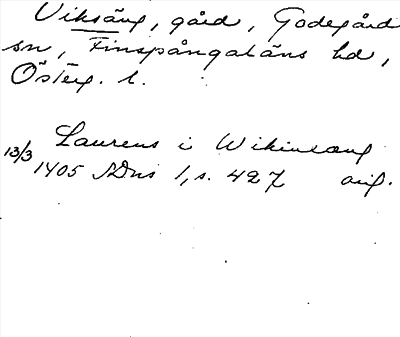 Viksäng, gård, Godegård
sn, Finspångaläns hd,
Österg. l.
Laurens i Wikinsæng
13/3 1405 SDns 1, s. 427 orig.